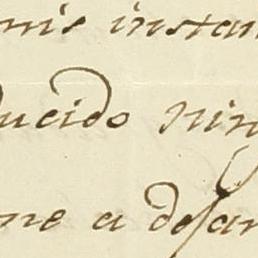 mis instan
ducido nin
me a dejar